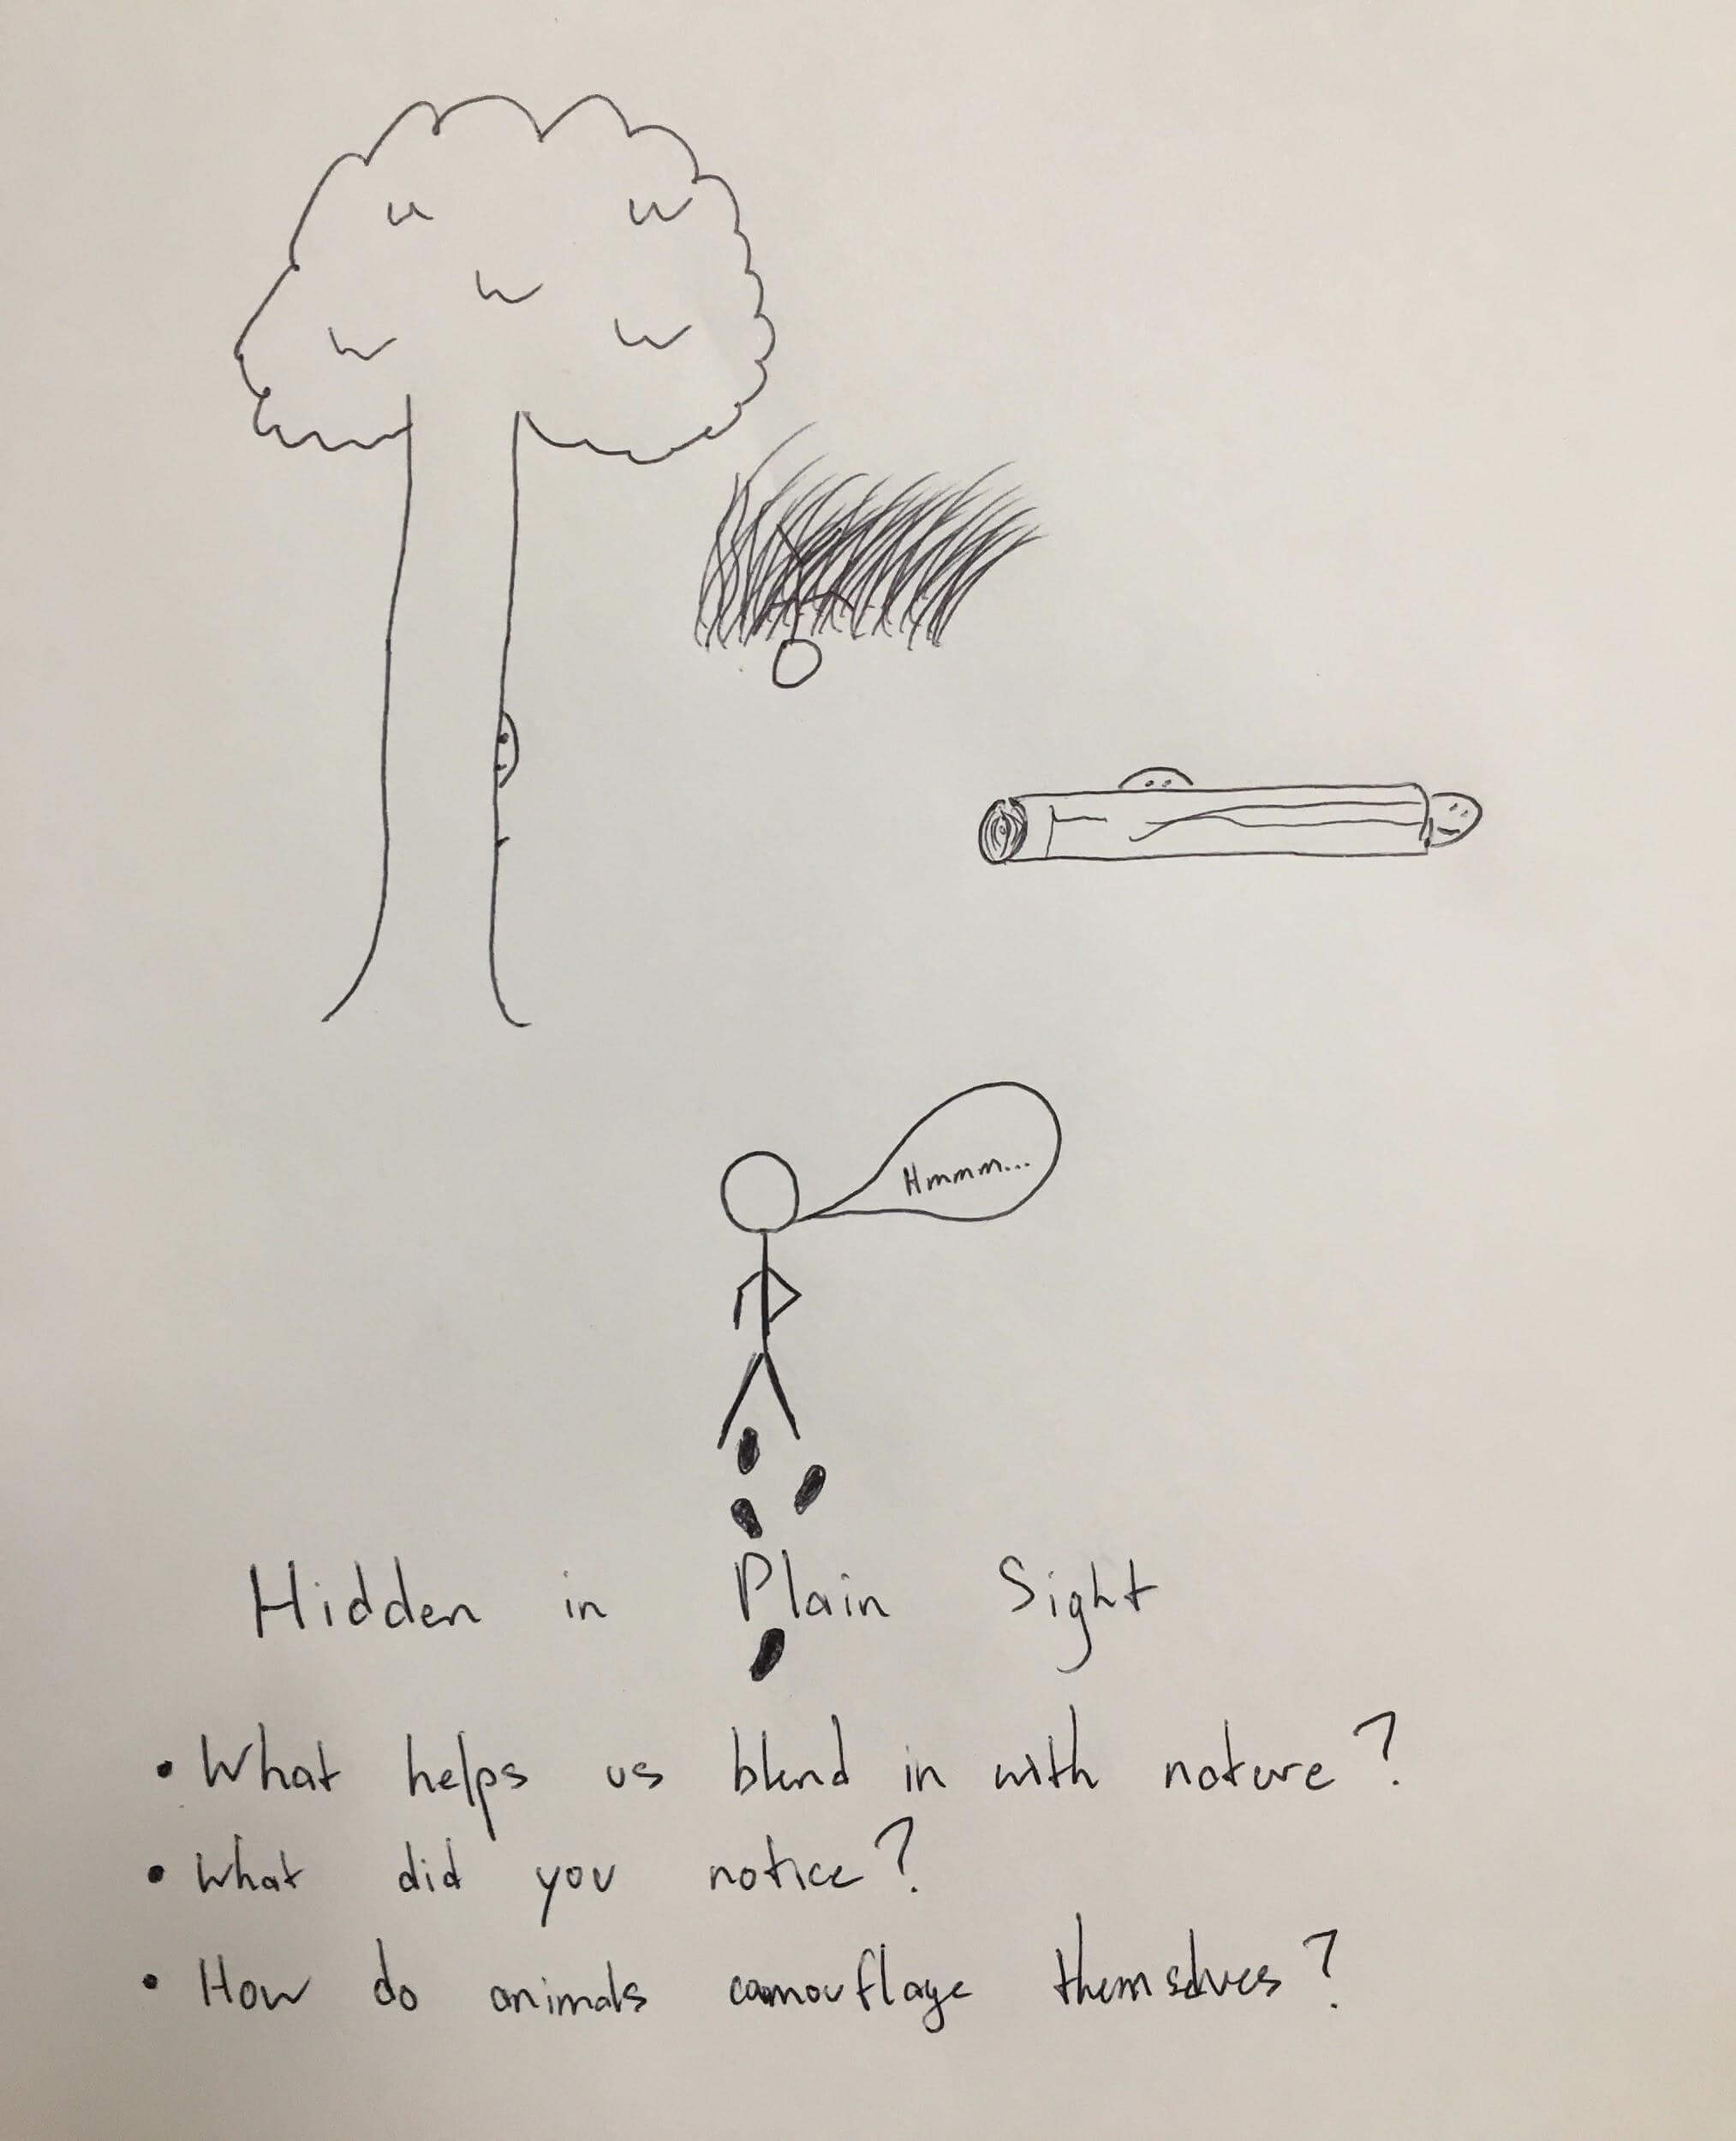 Hmmm...
Hidden in Plain Sight
• What helps us blend in with nature?
• What did you notice?
• How do animals camouflage themselves?